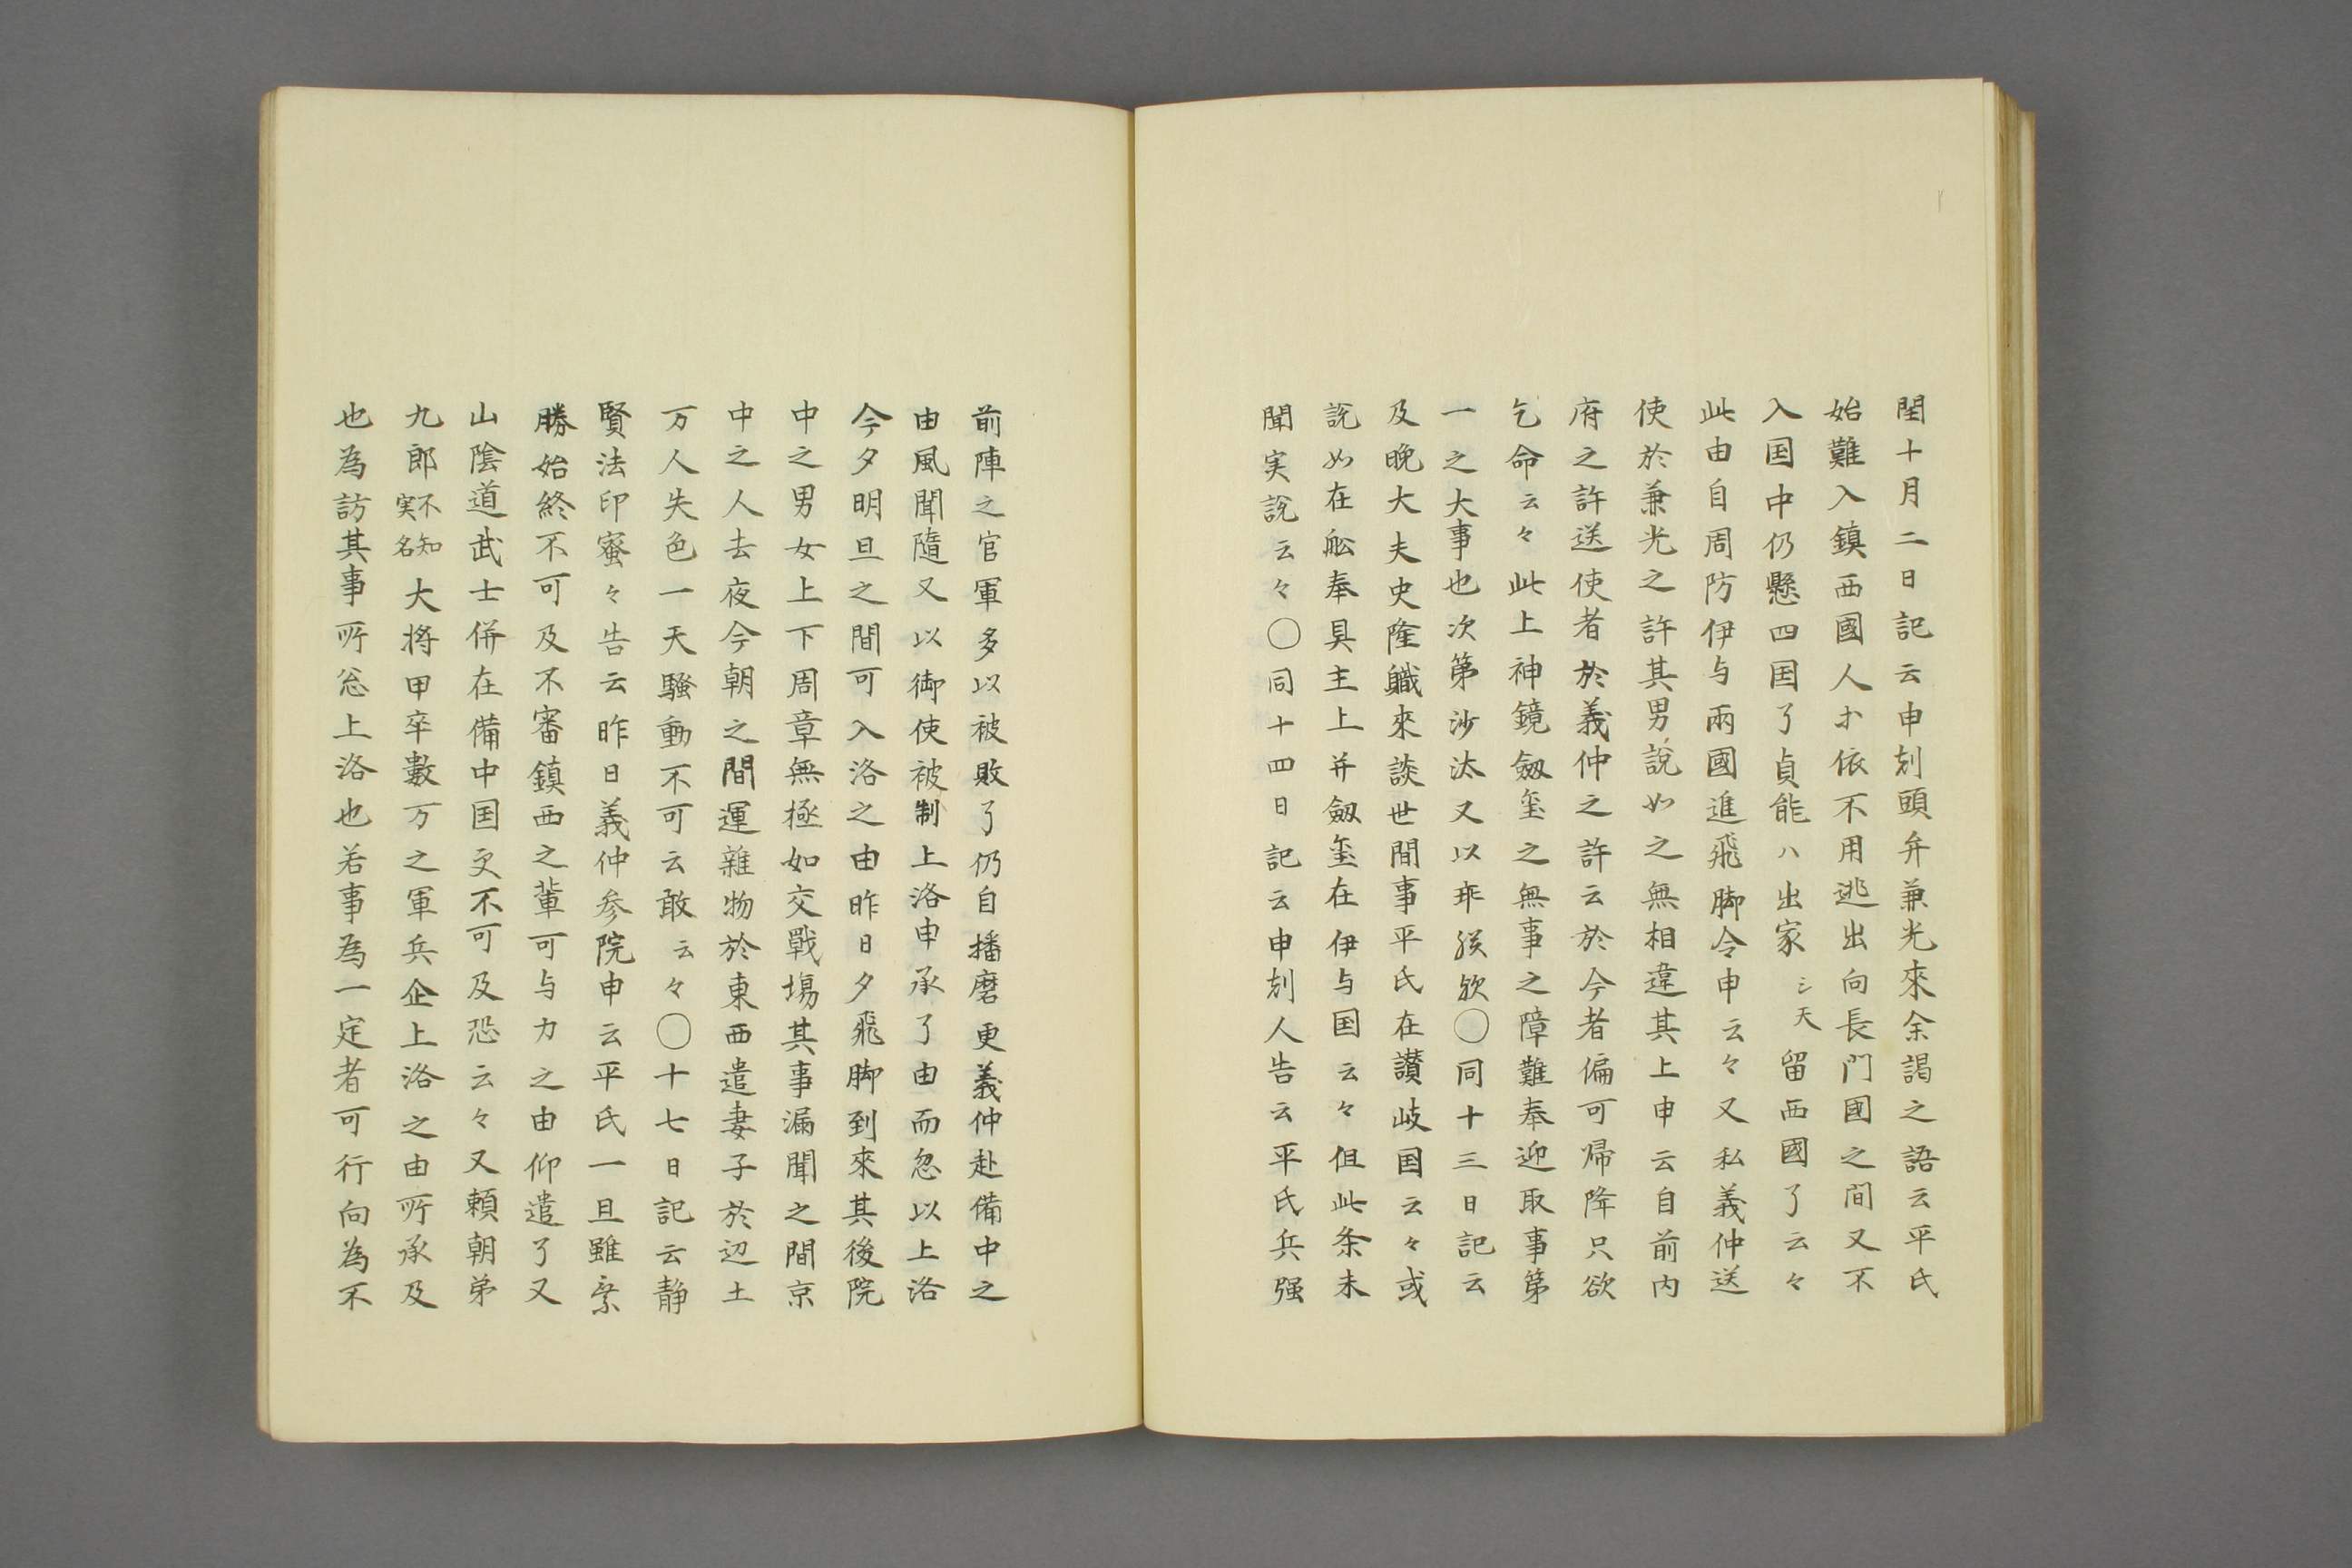 閏十月二日記云申刻頭弁兼光來余謁之語云平氏
始難入鎮西國人才依不用逃出向長門國之間又不
入国中仍懸四国了貞能ハ出家シ天留西國了云々
此由自周防伊与兩國進飛脚令申云々又私義仲送
使於兼光之許其男說如之無相違其上申云自前内
府之許送使者於義仲之許云於今者偏可帰降只欲
乞命云々此上神鏡劔璽之無事之障難奉迎取事第
一之大事也次第沙汰又以乖歟〇同十三日記云
及晩大夫史隆職來談世間事平氏在讃岐国云々或
說如在舩奉具主上并劔璽在伊与国云々但此条未
聞実說云々〇同十四日記云申刻人告云平氏兵强
前陣之官軍多以被敗了仍自播磨更義仲赴備中之
由風聞隨又以御使被制上洛申承了由而忽以上洛
今夕明旦之間可入洛之由昨日夕飛脚到來其後院
中之男女上下周章無極如交戰塲其事漏聞之間京
中之人去夜今朝之間運雜物於東西遣妻子於辺土
万人失色一天騷動不可云敢云々〇十七日記云静
賢法印蜜々告云昨日義仲参院申云平氏一旦雖乗
勝始終不可及不審鎮西之輩可与力之由仰遣了又
山陰道武士併在備中国更不可及恐云々又頼朝弟
九郎不知実名大将甲卒數万之軍兵企上洛之由所承及
也為訪其事所忩上洛也若事為一定者可行向為不